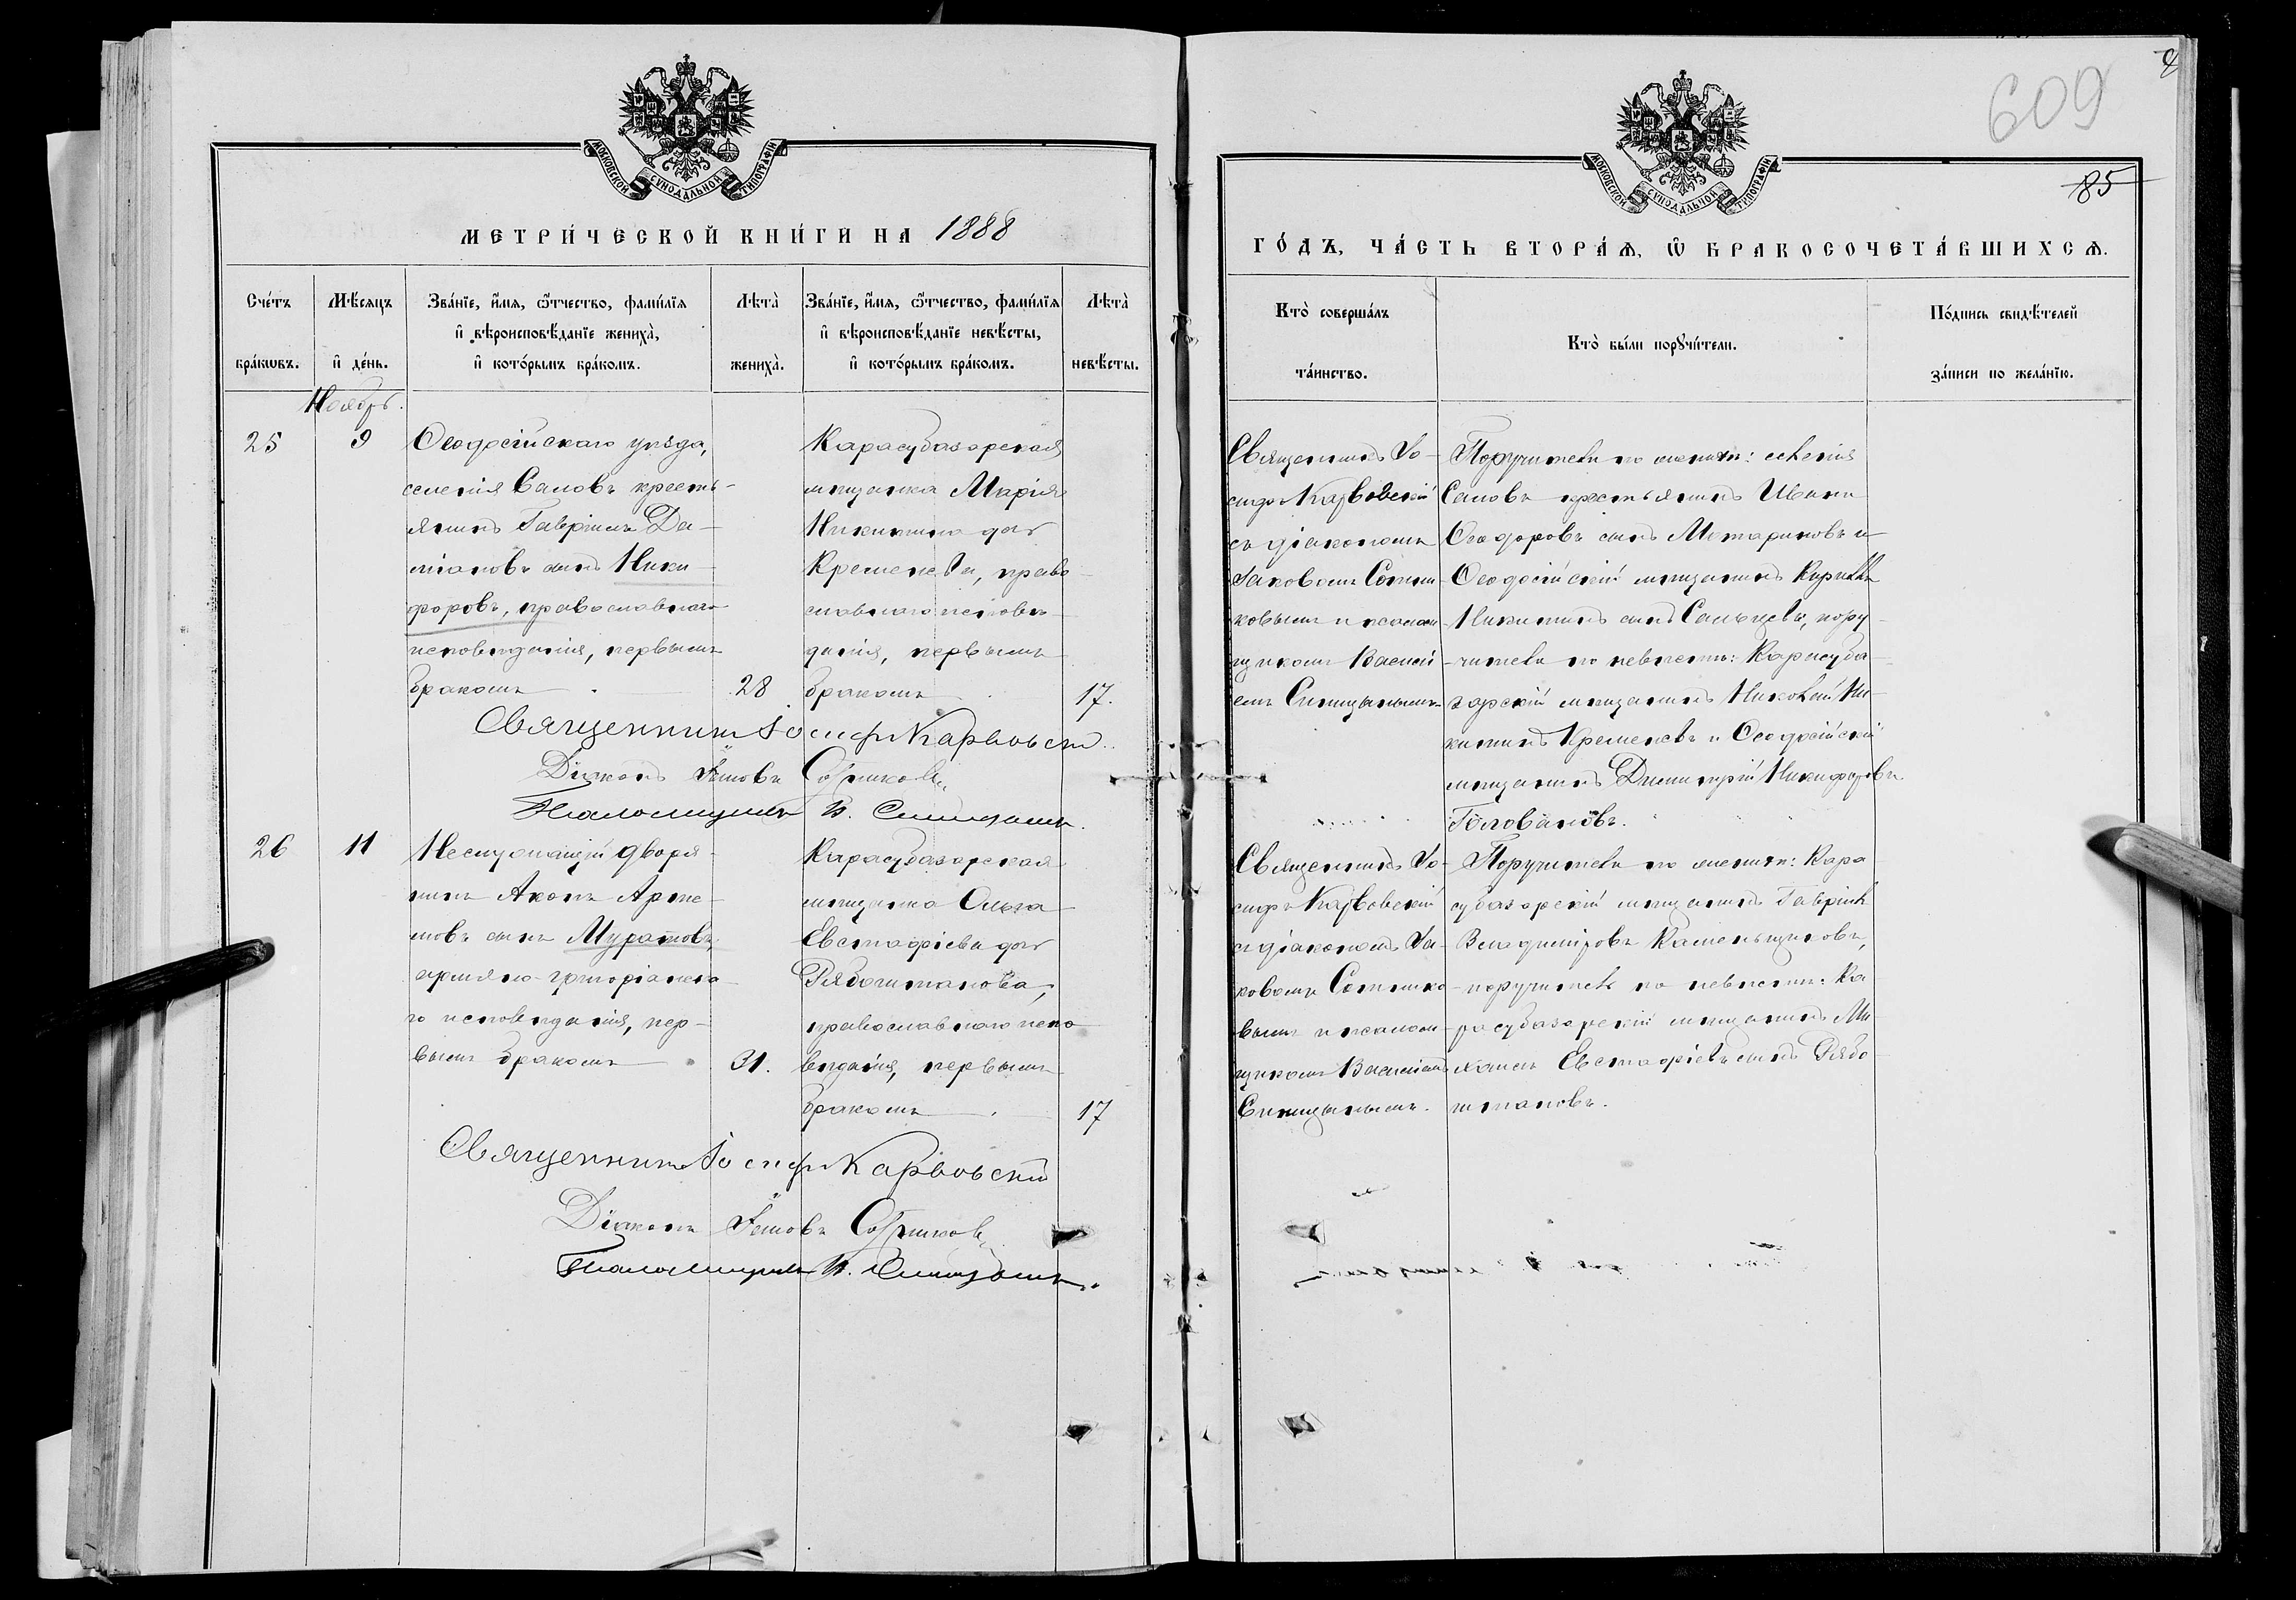 609
85
МОСКОВСКОЙ СѴНОДАЛЬНОЙ ТИПОГРАФІИ
МЕТРИ́ЧЕСКОЙ КНИ́ГИ НА 1888
Сче́тъ бра́кωвъ.
Мѣ́сяцъ и҆ де́нь.
Зва́нїе, и҆́мя, ѻ҆́тчество, фами́лїя
и҆ вѣроисповѣ́данїе жениха̀,
и҆ кото́рымъ бра́комъ.
Лѣта̀ жениха̀.
Зва́нїе, и҆́мя, ѻ҆́тчество, фами́лїя
и҆ вѣроисповѣ́данїе невѣ́сты,
и҆ кото́рымъ бра́комъ.
Лѣта̀ невѣ́сты.
Ноябрь.
25
9
Ѳеодосійскаго уѣзда,
селенія Саловъ кресть-
янинъ Гавріилъ Да-
міановъ сынъ Ники-
форовъ, православнаго
исповѣданія, первымъ
бракомъ
28
Карасубазарская
мѣщанка Марія
Никитина дочь
Кременева, право-
славнаго исповѣ-
данія, первымъ
бракомъ
17.
Священникъ Іосифъ Карвовскій
Діаконъ Іаковъ Сотниковъ
Псаломщикъ В. Синицынъ.
26
11
Неслужащій дворя-
нинъ Акопъ Арте-
мовъ сынъ Муратовъ,
армяно-григоріанска-
го исповѣданія, пер-
вымъ бракомъ
31.
Карасубазарская
мѣщанка Ольга
Евстафіева дочь
Рябоштанова,
православнаго испо-
вѣданія, первымъ
бракомъ
17
Священникъ Іосифъ Карвовскій
Діаконъ Іаковъ Сотниковъ
Псаломщикъ В. Синицынъ.
МОСКОВСКОЙ СѴНОДАЛЬНОЙ ТИПОГРАФІИ
ГО́ДЪ, ЧА́СТЬ ВТОРА́Ѧ, Ѡ҆ БРАКОСОЧЕТА́ВШИХСѦ.
Кто̀ соверша́лъ
та́инство.
Кто̀ бы́ли порꙋчи́тели.
По́дпись свидѣ́телей
за́писи по жела́нїю.
Священникъ Іо-
сифъ Карвовскій
съ діакономъ
Іаковомъ Сотни-
ковымъ и псалом-
щикомъ Васілі-
емъ Синицынымъ
Поручители по женихѣ: селенія
Саловъ крестьянинъ Иванъ
Ѳеодоровъ сынъ Мотариковъ и
Ѳеодосійскій мѣщанинъ Кириллъ
Никитинъ сынъ Сальцевъ, пору-
чители по невѣстѣ: Карасуба-
зарскій мѣщанинъ Николай Ни-
китинъ Кременевъ и Ѳеодосійскій
мѣщанинъ Димитрій Никифоровъ
Головановъ.
Священникъ Іо-
сифъ Карвовскій
съ діакономъ Іа-
ковомъ Сотнико-
вымъ и псалом-
щикомъ Василіемъ
Синицынымъ.
Поручители по женихѣ: Кара-
субазарскій мѣщанинъ Гавріилъ
Владиміровъ Каменьщиковъ,
поручитель по невѣстѣ: Ка-
расубазарскій мѣщанинъ Ми-
хаилъ Евстафіевъ сынъ Рябо-
штановъ.